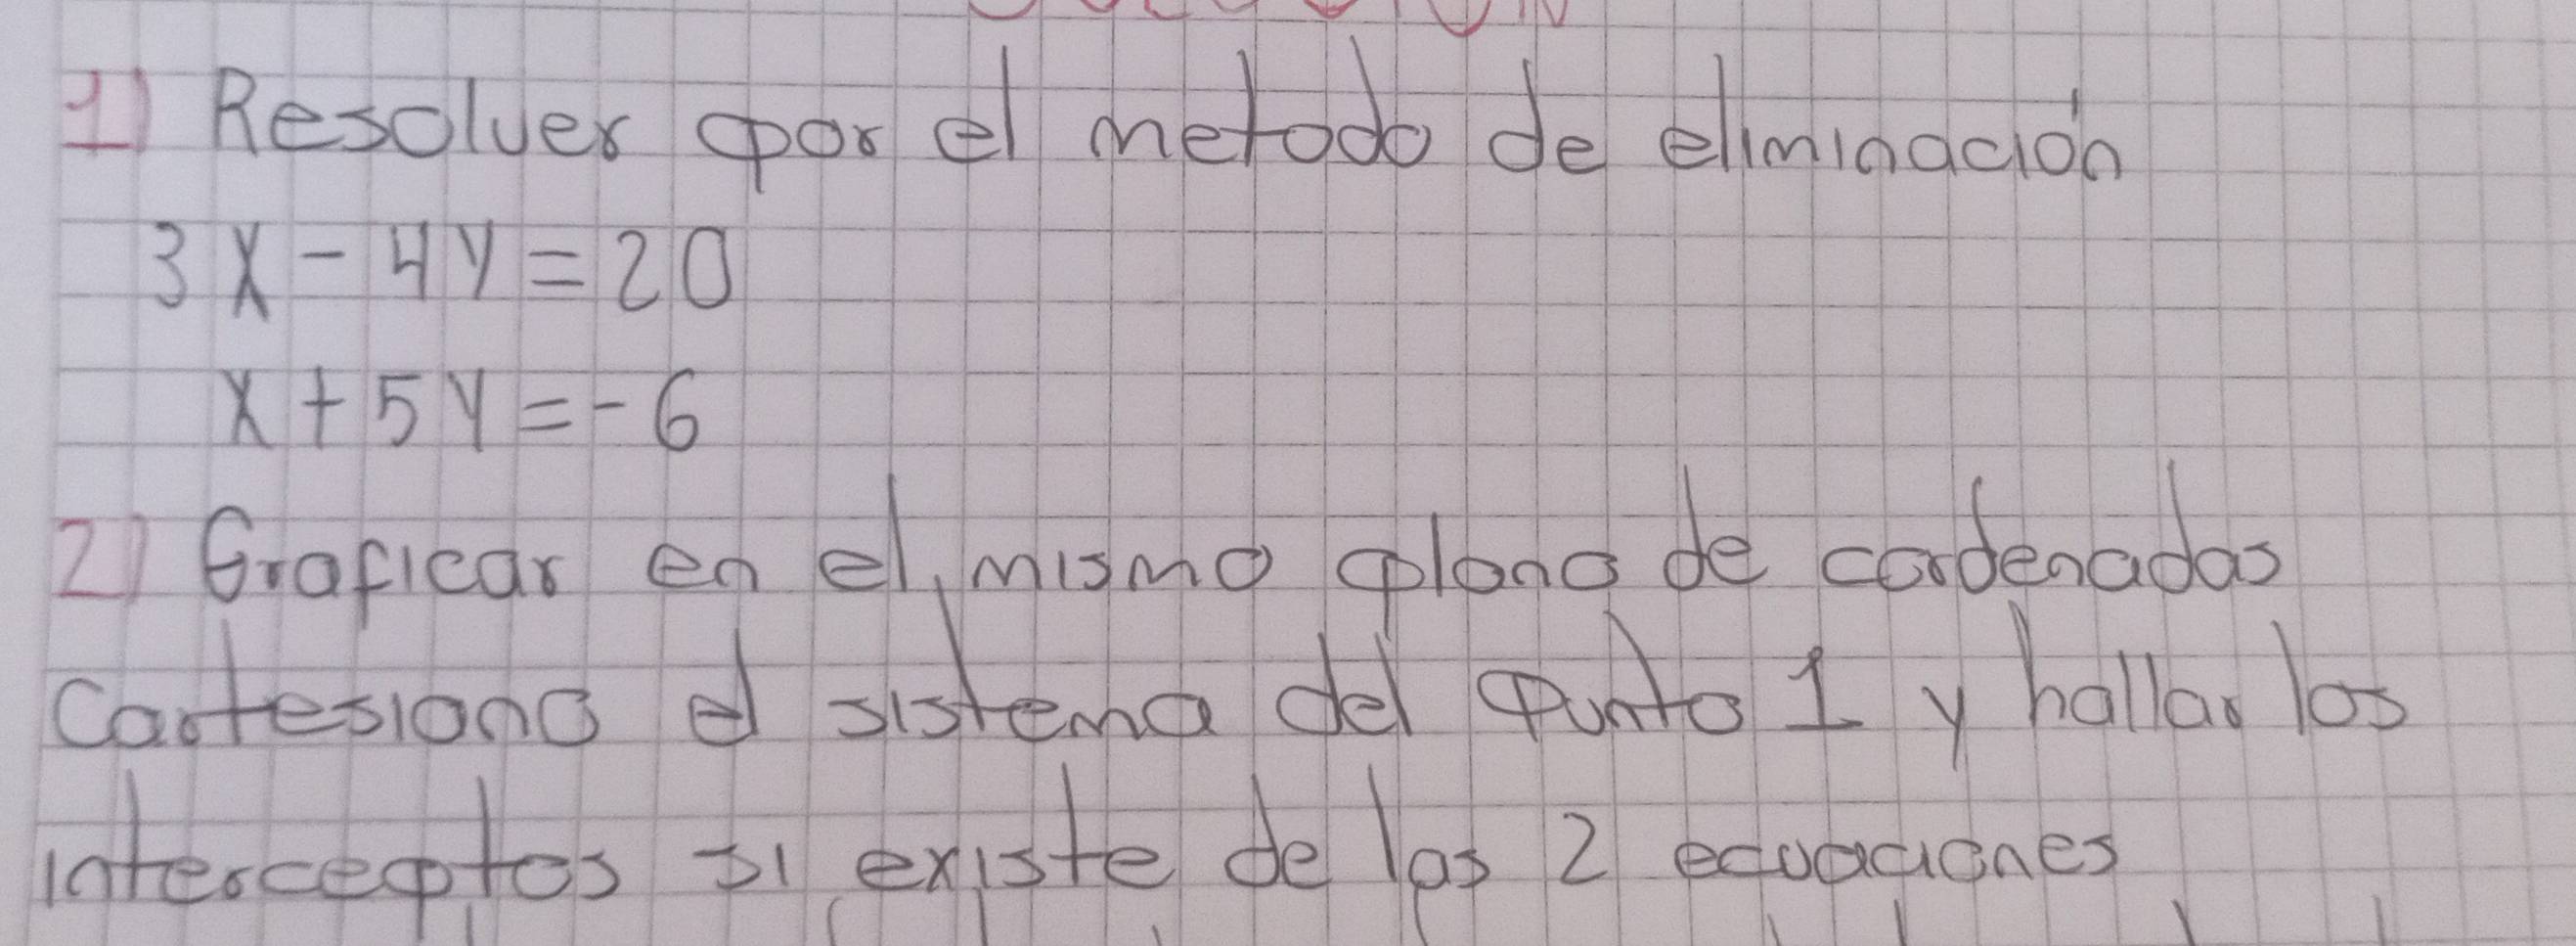 1) Resolver por el metodo de eliminación
3X - 4Y = 20
X + 5Y = -6
2) Graficar en el mismo plano de cordenadas
Cartesiano el sistema del punto 1 y hallar los
interceptos si existe de las 2 ecuaciones